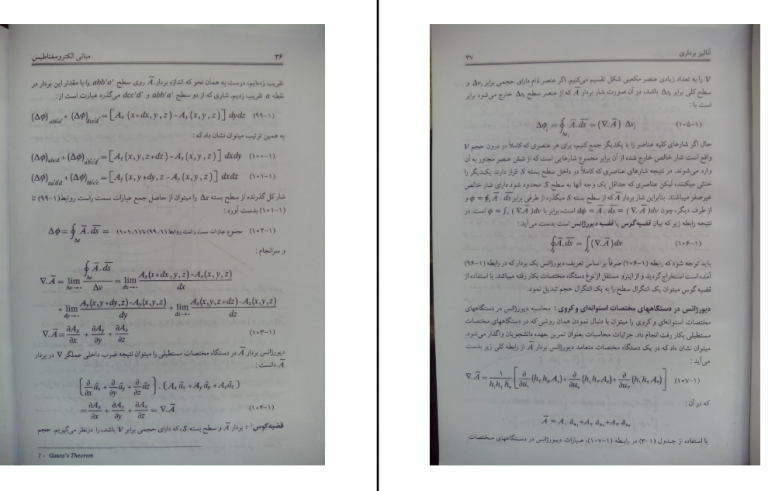 ۳۶ مبانی الکترومغناطیس
تقریب زده‌ایم، درست به همان نحو که اندازه بردار A̅ روی سطح abb'a' را با مقدار این بردار در
نقطه a تقریب زدیم. شاری که از دو سطح abb'a' و dcc'd' می‌گذرد عبارت است از:
(۱-۹۹) [Aₓ(x+dx, y, z) - Aₓ(x, y, z)] dydz
به همین ترتیب میتوان نشان داد که:
(۱-۱۰۰) [A_z(x, y, z+dz) - A_z(x, y, z)] dxdy
(۱-۱۰۱) [A_y(x, y+dy, z) - A_y(x, y, z)] dxdz
شار کل گذرنده از سطح بسته Δs را میتوان از حاصل جمع عبارات سمت راست روابط (۱-۹۹) تا
(۱-۱۰۱) بدست آورد:
(۱-۱۰۲) مجموع عبارات سمت راست روابط (۱-۹۹) تا (۱-۱۰۱) = Δφ = ∮ A̅.ds̅
و سرانجام:
∇.A̅ = lim ∮ A̅.ds̅ / Δv = lim Aₓ(x+dx, y, z) - Aₓ(x, y, z) / dx
+ lim A_y(x, y+dy, z) - A_y(x, y, z) / dy + lim A_z(x, y, z+dz) - A_z(x, y, z) / dz
(۱-۱۰۳) ∇.A̅ = ∂Aₓ/∂x + ∂A_y/∂y + ∂A_z/∂z
دیورژانس بردار A̅ در دستگاه مختصات مستطیلی را میتوان نتیجه ضرب داخلی عملگر ∇ در بردار
A̅ دانست:
(۱-۱۰۴) = ∂Aₓ/∂x + ∂A_y/∂y + ∂A_z/∂z = ∇.A̅
قضیه گوس¹: بردار A̅ و سطح بسته S، که دارای حجمی برابر V باشد، را در نظر می‌گیریم. حجم
1 - Gauss's Theorem
آنالیز برداری ۳۷
V را به تعداد زیادی عنصر مکعبی شکل تقسیم می‌کنیم. اگر عنصر iام دارای حجمی برابر Δvᵢ و
سطح کلی برابر Δsᵢ باشد، در آن صورت شار بردار A̅ که از عنصر سطح Δsᵢ خارج می‌شود برابر
است با:
(۱-۱۰۵) Δφᵢ = ∮ A̅.ds̅ = (∇.A̅) Δvᵢ
حال اگر شارهای کلیه عناصر را با یکدیگر جمع کنیم، برای هر عنصری که کاملاً در درون حجم V
واقع است شار خالص خارج شده از آن برابر مجموع شارهایی است که از شش عنصر مجاور به آن
وارد می‌شوند. در نتیجه شارهای عناصری که کاملاً در داخل سطح بسته S قرار دارند یکدیگر را
خنثی میکنند، لیکن عناصری که حداقل یک وجه آنها به سطح S محدود شود دارای شار خالص
غیرصفر میباشند. بنابراین شار بردار A̅ که از سطح بسته S میگذرد از طرفی برابر φ = ∮ A̅.ds̅ و
از طرف دیگر، چون dφ = A̅.ds̅ = (∇.A̅)dv است، برابر با φ = ∫ (∇.A̅)dv است. در
نتیجه رابطه زیر که بیان قضیه گوس یا قضیه دیورژانس است بدست می‌آید:
(۱-۱۰۶) ∮ A̅.ds̅ = ∫ (∇.A̅) dv
باید توجه شود که رابطه (۱-۱۰۶) صرفاً بر اساس تعریف دیورژانس یک بردار که در رابطه (۱-۹۶)
آمده است استخراج گردید و از اینرو مستقل از نوع دستگاه مختصات بکار رفته میباشد. با استفاده از
قضیه گوس میتوان یک انتگرال سطح را به یک انتگرال حجم تبدیل نمود.
دیورژانس در دستگاههای مختصات استوانه‌ای و کروی: محاسبه دیورژانس در دستگاههای
مختصات استوانه‌ای و کروی را میتوان با دنبال نمودن همان روشی که در دستگاههای مختصات
مستطیلی بکار رفت انجام داد. جزئیات محاسبات بعنوان تمرین بعهده دانشجویان واگذار می‌شود.
میتوان نشان داد که در یک دستگاه مختصات متعامد دیورژانس بردار A̅ از رابطه کلی زیر بدست
می‌آید:
(۱-۱۰۷) ∇.A̅ =
که در آن:
با استفاده از جدول (۱-۳) در رابطه (۱-۱۰۷)، عبارات دیورژانس در دستگاههای مختصات